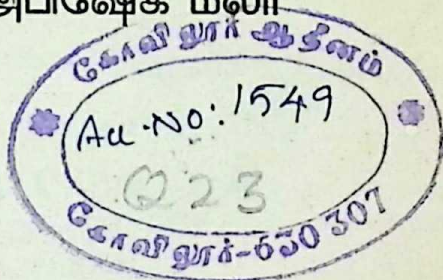 அபிஷேக மலர்
கோவிலூர் ஆதீனம்
Acc.No: 1549
Q23
கோவிலூர்-630 307